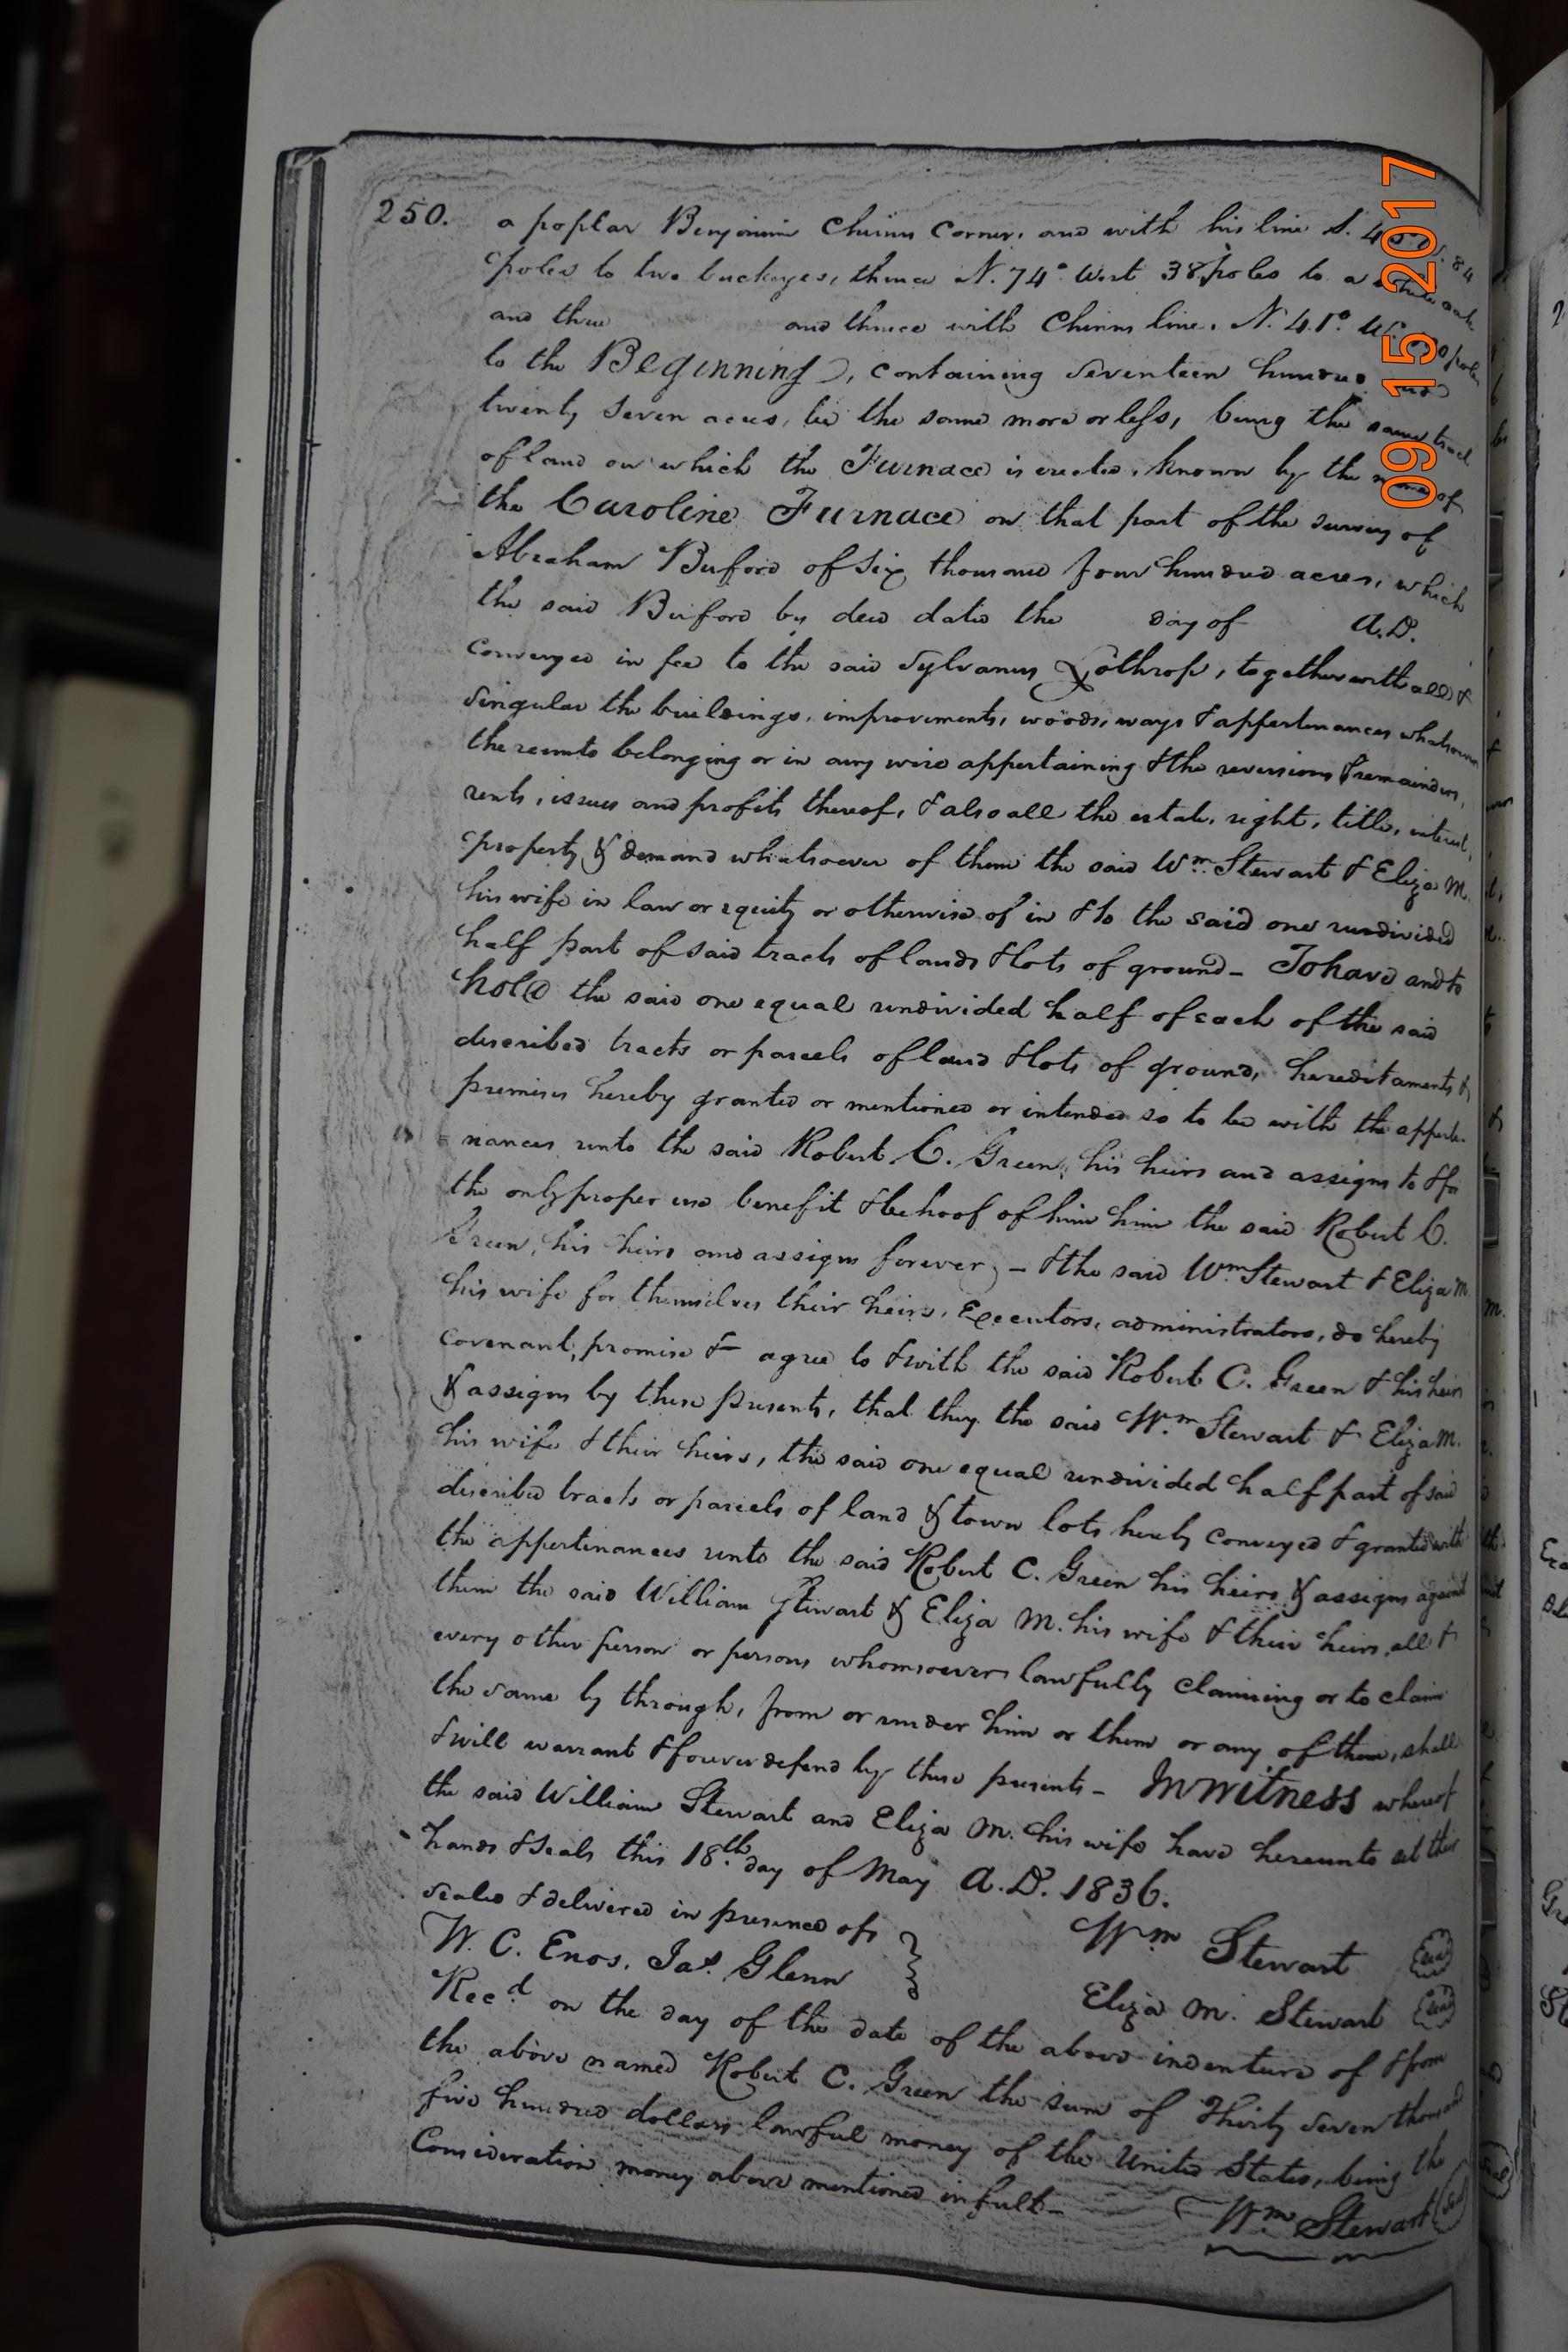 250.
a poplar Benjamin Chinns Corner, and with his line S.
poles to two buckeyes, thence N. 74° West 38 poles to a white oak
and three and thence with Chinns line, N. 41° W. poles
to the Beginning, containing Seventeen hundred and
twenty seven acres, be the same more or less, being the same tract
of land on which the Furnace is erected, known by the name of
the Caroline Furnace on that part of the survey of
Abraham Buford of Six thousand four hundred acres, which
the said Buford by deed dated the day of A.D.
Conveyed in fee to the said Sylvanus Lothrop, together with all &
singular the buildings, improvements, woods, ways & appertinances whatsoever
thereunto belonging or in any wise appertaining & the reversions & remainders,
rents, issues and profits thereof, & also all the estate, right, title, interest,
property & demand whatsoever of them the said Wm. Stewart & Eliza M.
his wife in law or equity or otherwise of in & to the said one undivided
half part of said tracts of lands & lots of ground - To have and to
hold the said one equal undivided half of each of the said
described tracts or parcels of land & lots of ground, hereditaments &
premises hereby granted or mentioned or intended so to be with the apperte-
nances unto the said Robert C. Green, his heirs and assigns to & for
the only proper use benefit & behoof of him him the said Robert C.
Green, his heirs and assigns forever, - & the said Wm Stewart & Eliza M.
his wife for themselves their heirs, Executors, administrators, do hereby
covenant, promise & agree to & with the said Robert C. Green & his heirs
& assigns by these presents, that they the said Wm. Stewart & Eliza M.
his wife & their heirs, the said one equal undivided half part of said
described tracts or parcels of land & town lots hereby conveyed & granted with
the appertinances unto the said Robert C. Green his heirs & assigns against
them the said William Stewart & Eliza M. his wife & their heirs, all &
every other person or persons whomsoever lawfully claiming or to claim
the same by through, from or under him or them or any of them, shall
& will warrant & forever defend by these presents - In Witness whereof
the said William Stewart and Eliza M. his wife have hereunto set their
hands & seals this 18th. day of May A.D. 1836.
sealed & delivered in presence of
Wm Stewart Seal
W. C. Enos, Jas. Glenn
Eliza M. Stewart Seal
Recd. on the day of the date of the above indenture of & from
the above named Robert C. Green the sum of Thirty Seven thousand
five hundred dollars lawful money of the United States, being the
Consideration money above mentioned in full -
Wm Stewart Seal
09 15 2017